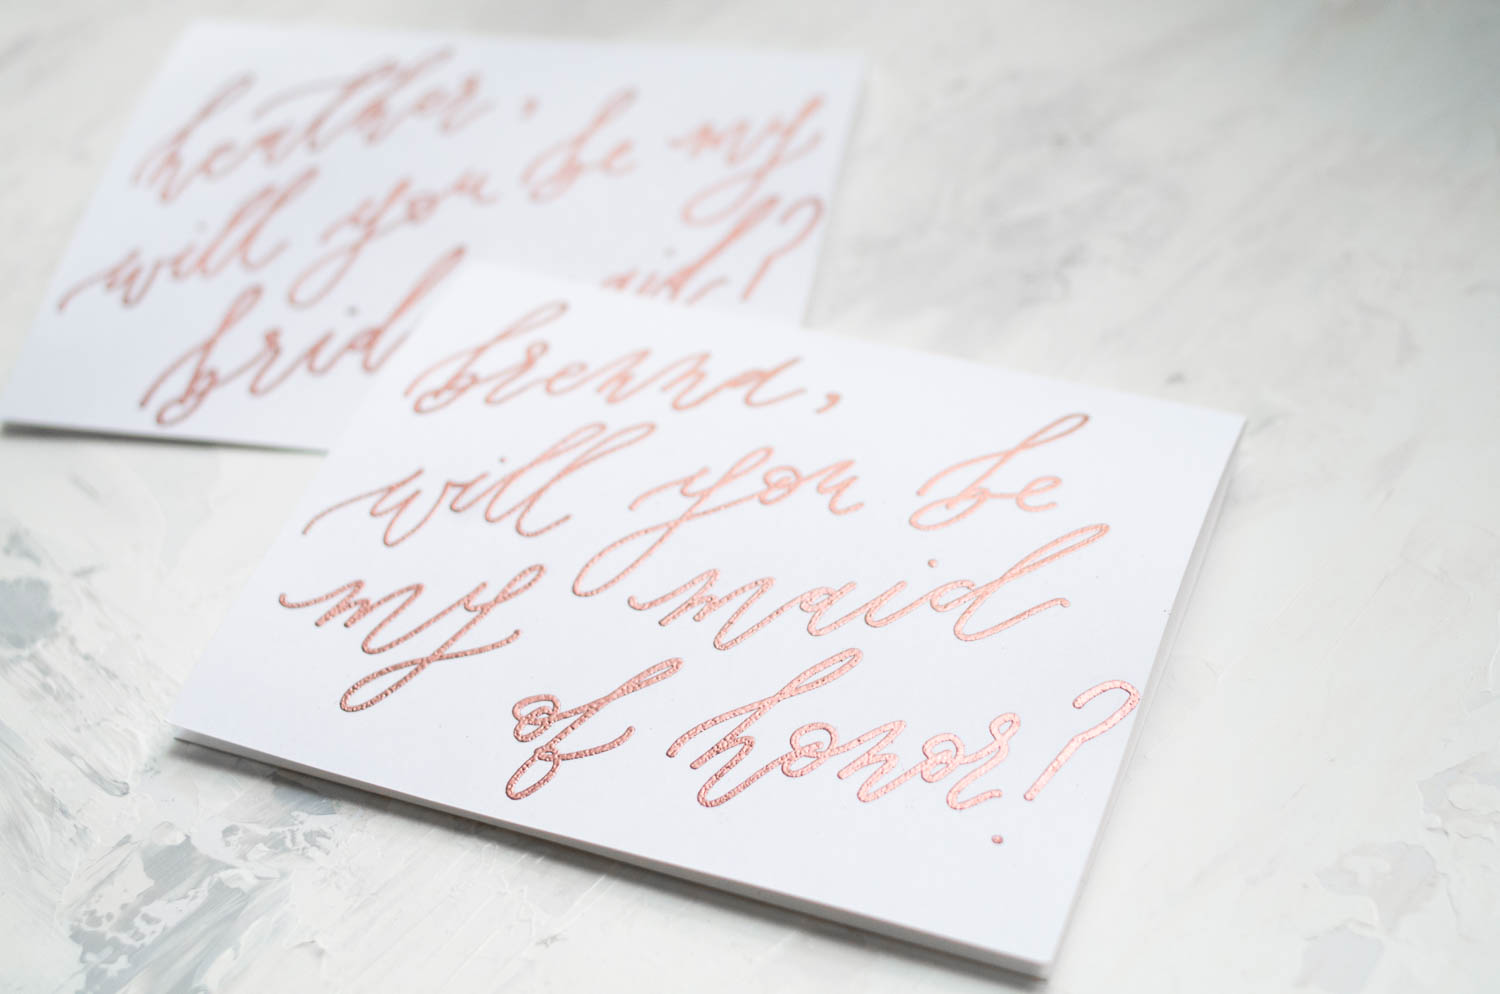 heather,
will you be my
brid aid?
brenna,
will you be
my maid
of honor?